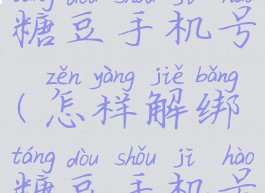 táng dòu shǒu jī hào
糖豆手机号
zěn yàng jiě bǎng
(怎样解绑
táng dòu shǒu jī hào
糖豆手机号